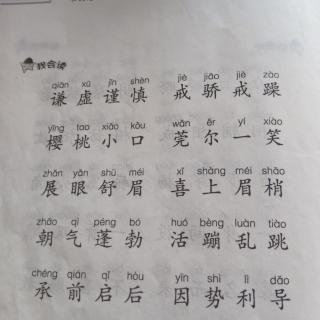 我会读
qiān xū jǐn shèn jiè jiāo jiè zào
谦虚谨慎 戒骄戒躁
yīng tao xiǎo kǒu wǎn ěr yí xiào
樱桃小口 莞尔一笑
zhǎn yǎn shū méi xǐ shàng méi shāo
展眼舒眉 喜上眉梢
zhāo qì péng bó huó bèng luàn tiào
朝气蓬勃 活蹦乱跳
chéng qián qǐ hòu yīn shì lì dǎo
承前启后 因势利导